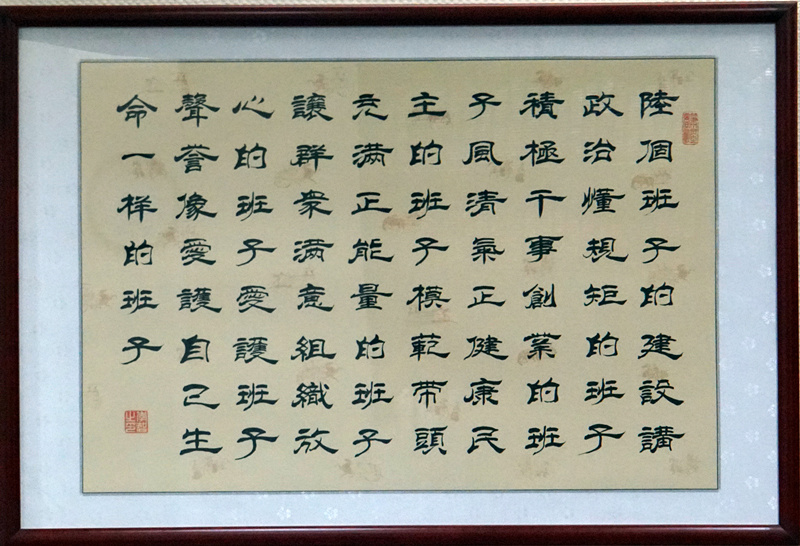 陸個班子的建設講
政治懂規矩的班子
積極干事創業的班
子風清氣正健康民
主的班子模範帶頭
充满正能量的班子
讓群衆满意組織放
心的班子愛護班子
聲誉像愛護自己生
命一样的班子